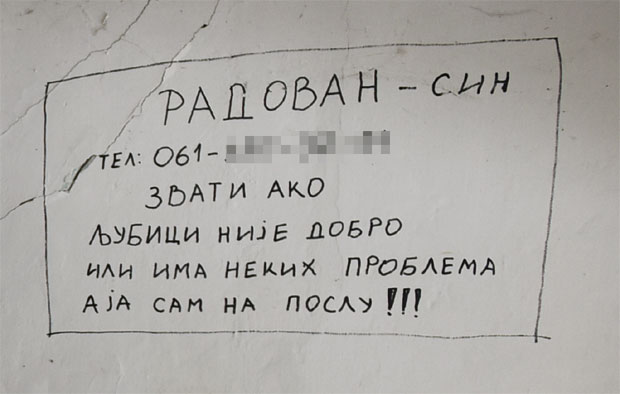 РАДОВАН - СИН
ТЕЛ: 061-
ЗВАТИ АКО
ЉУБИЦИ НИЈЕ ДОБРО
ИЛИ ИМА НЕКИХ ПРОБЛЕМА
АЈА САМ НА ПОСЛУ !!!